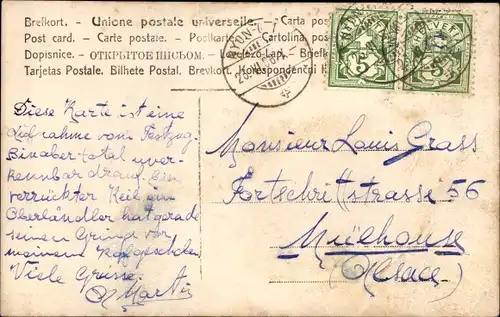 Brefkort. – Unione postale universelle. – Carta po
Post card. – Carte postale. – Postkart Cartolina pos
Dopisnice. – ОТКРЫТОЕ ПИСЬМО. – Lap. – Briefk
Tarjetas Postale. Bilhete Postal. Brevkort. Korespondenční
NYON
HELVETIA
5
5
Diese Karte ist eine
Aufnahme vom Festzug.
Bin aber total uner-
kennbar drauf. Ein
verrückter Keil ein
Oberländler hat gerade
seinen Grind vor
meinem Kopf geschoben
Viele Grüsse.
Monsieur Louis Grass
Fortschrittstrasse 56
Mülhouse
(Alsace)